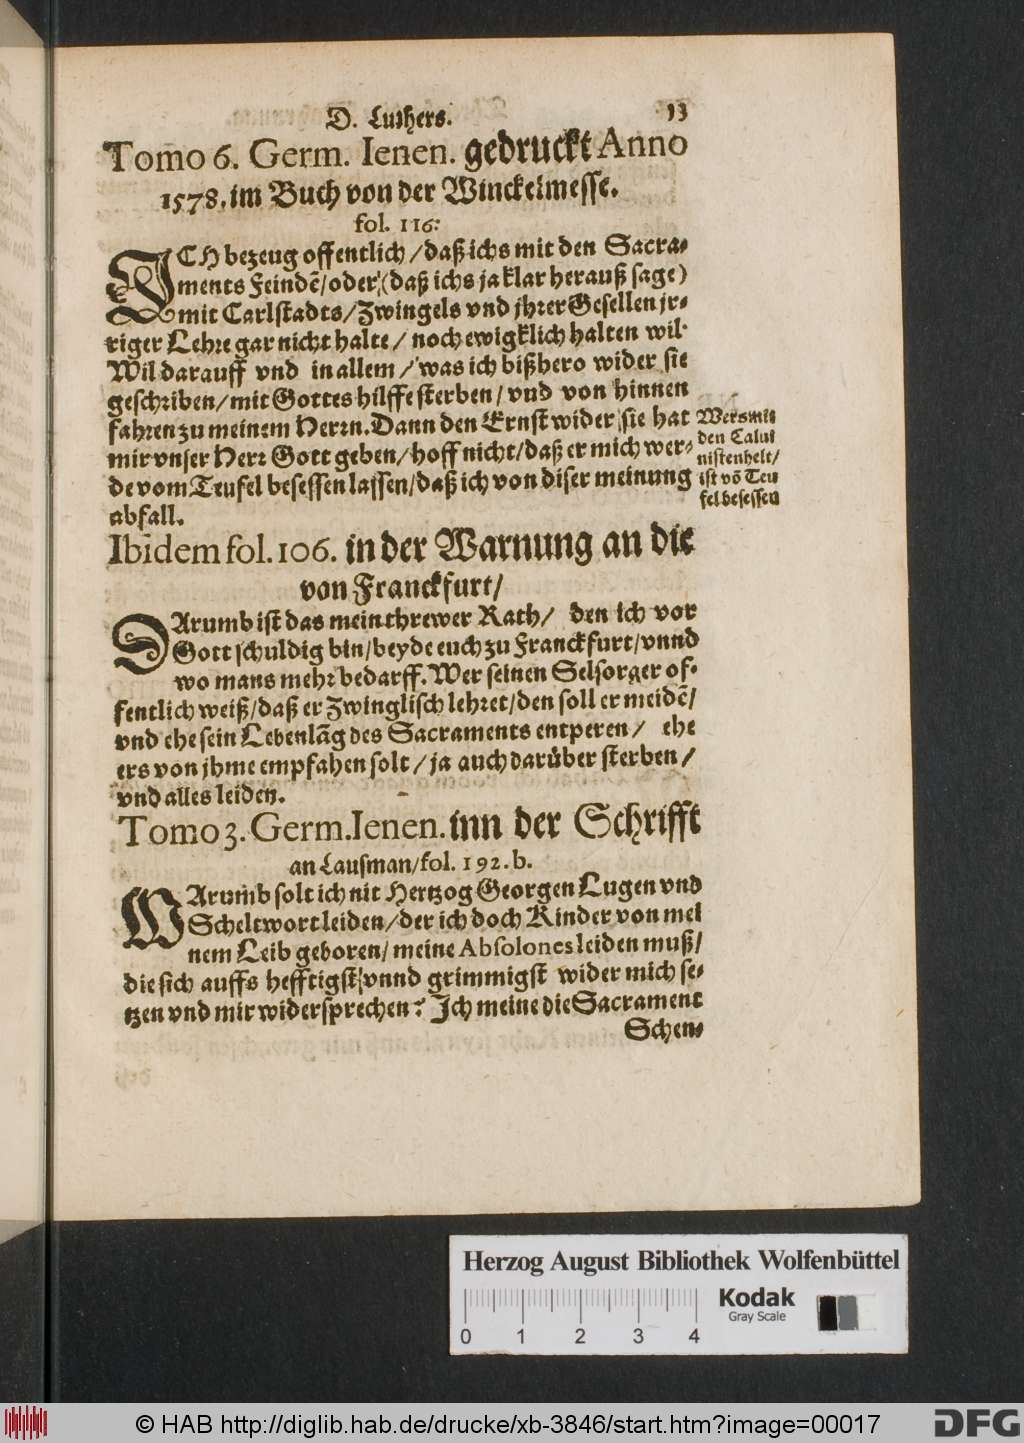 D. Luthers. 13
Tomo 6. Germ. Ienen. gedruckt Anno
1578. im Buch von der Winckelmesse.
fol. 116:
ICH bezeug offentlich/daß ichs mit den Sacra-
ments Feindē/oder (daß ichs ja klar herauß sage)
mit Carlstadts/Zwingels vnd jhrer Gesellen jr-
riger Lehre gar nicht halte/ noch ewigklich halten wil.
Wil darauff vnd in allem/ was ich bißhero wider sie
geschriben/mit Gottes hilffe sterben/ vnd von hinnen
fahren zu meinem Herrn. Dann den Ernst wider sie hat
mir vnser Herr Gott geben/hoff nicht/daß er mich wer-
de vom Teufel besessen lassen/daß ich von diser meinung
abfall.
Wers mit
den Calui
nisten helt/
ist vō Teu
fel besessen
Ibidem fol. 106. in der Warnung an die
von Franckfurt/
DArumb ist das mein threwer Rath/ den ich vor
Gott schuldig bin/beyde euch zu Franckfurt/vnnd
wo mans mehr bedarff. Wer seinen Selsorger of-
fentlich weiß/daß er Zwinglisch lehret/den soll er meidē/
vnd ehe sein Lebenlāg des Sacraments entperen/ ehe
ers von jhme empfahen solt/ja auch darüber sterben/
vnd alles leiden.
Tomo 3. Germ. Ienen. inn der Schrifft
an Lausman/fol. 192. b.
WArumb solt ich nit Hertzog Georgen Lugen vnd
Scheltwort leiden/der ich doch Kinder von mei
nem Leib geboren/ meine Absolones leiden muß/
die sich auffs hefftigst/vnnd grimmigst wider mich se-
tzen vnd mir widersprechen? Ich meine die Sacrament
Schen-
Herzog August Bibliothek Wolfenbüttel
Kodak
Gray Scale
0 1 2 3 4
© HAB http://diglib.hab.de/drucke/xb-3846/start.htm?image=00017
DFG